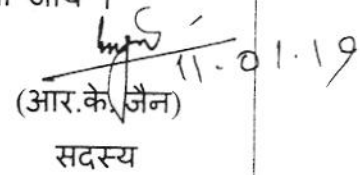 11.01.19
(आर.के. जैन)
सदस्य